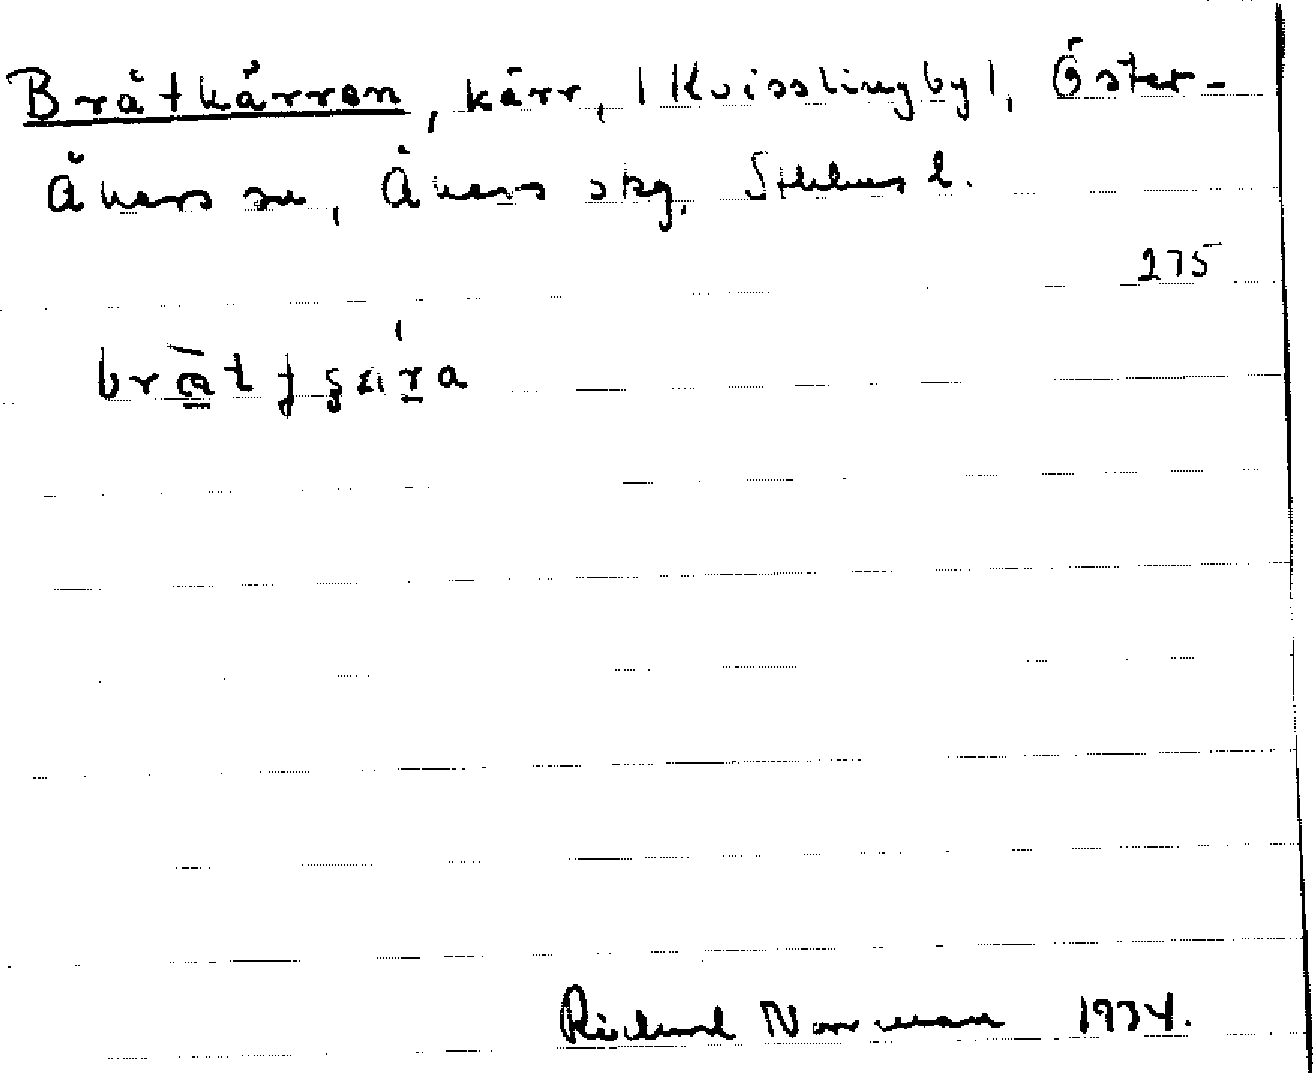 Bråtkärren, kärr, (Kvisslingby), Öster-
Åkers sn, Åkers skg, Sthlms l.
275
Richard Norrman 1934.